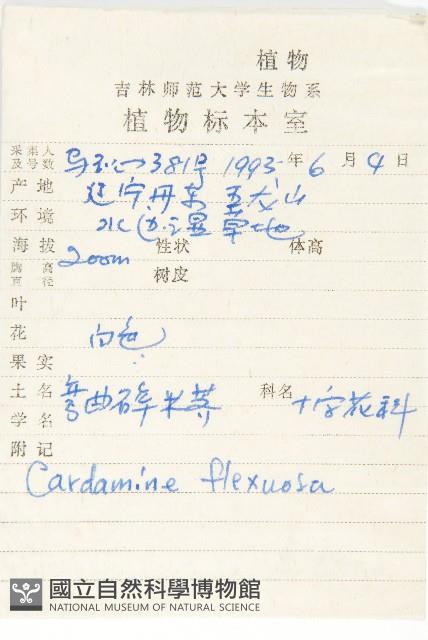 植物
吉林师范大学生物系
植物标本室
采集人及号数 381号 1993年6月4日
产地 辽宁丹东五龙山
环境 水边湿草地
海拔 200m 性状 体高
胸高直径 树皮
叶
花 白色
果实
土名 弯曲碎米荠 科名 十字花科
学名
附记
Cardamine flexuosa
國立自然科學博物館
NATIONAL MUSEUM OF NATURAL SCIENCE